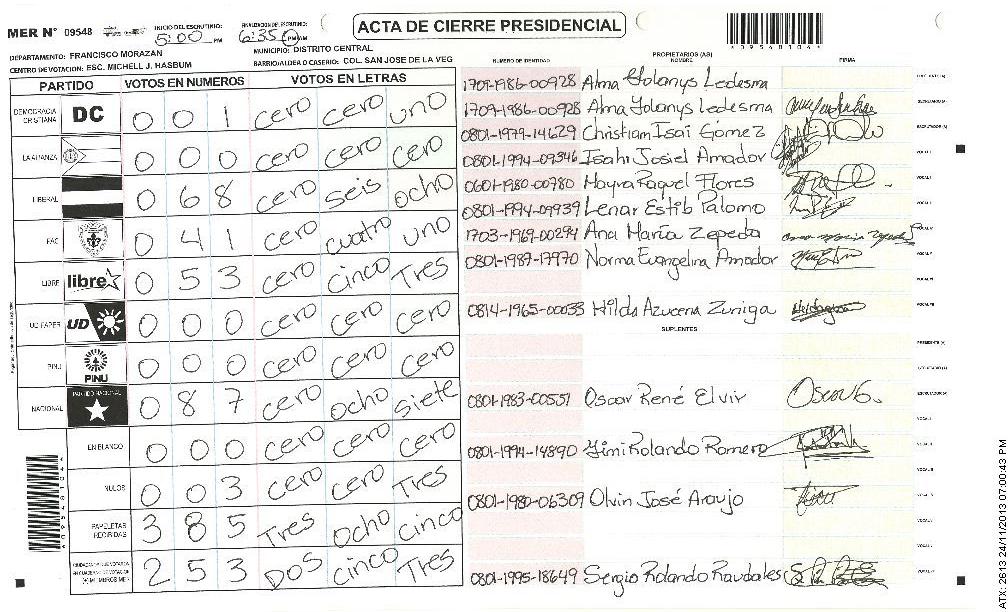 MER N° 09548
INICIO DEL ESCRUTINIO:
5:00 PM
FINALIZACION DEL ESCRUTINIO:
6:35 PM
ACTA DE CIERRE PRESIDENCIAL
DEPARTAMENTO: FRANCISCO MORAZAN
MUNICIPIO: DISTRITO CENTRAL
CENTRO DE VOTACION: ESC. MICHELL J. HASBUM
BARRIO/ALDEA O CASERIO: COL. SAN JOSE DE LA VEG
PARTIDO VOTOS EN NUMEROS VOTOS EN LETRAS
DEMOCRACIA CRISTIANA DC 0 0 1 cero cero uno
LA ALIANZA 0 0 0 cero cero cero
LIBERAL 0 6 8 cero seis ocho
FAC 0 4 1 cero cuatro uno
LIBRE libre 0 5 3 cero cinco Tres
UD FAPER UD 0 0 0 cero cero cero
PINU PINU 0 0 0 cero cero cero
NACIONAL PARTIDO NACIONAL 0 8 7 cero ocho siete
EN BLANCO 0 0 0 cero cero cero
NULOS 0 0 3 cero cero Tres
PAPELETAS RECIBIDAS 3 8 5 Tres Ocho cinco
2 5 3 DOS cinco Tres
NUMERO DE IDENTIDAD PROPIETARIOS (AS) NOMBRE FIRMA
1709-1986-00928 Alma Yolanys Ledesma
1709-1986-00928 Alma Yolanys Ledesma
0801-1979-14629 Christian Isaí Gómez
0801-1994-09346 Isahi Josiel Amador
0601-1980-00780 Mayra Raquel Flores
0801-1994-09939 Lenar Estib Palomo
1703-1969-00294 Ana María Zepeda
0801-1987-17970 Norma Evangelina Amador
0814-1965-00033 Hilda Azucena Zuniga
SUPLENTES
0801-1983-00551 Oscar René Elvir
0801-1994-14890 Yimi Rolando Romero
0801-1980-06309 Olvin José Araujo
0801-1995-18649 Sergio Rolando Raudales
ATX: 2613 24/11/2013 07:00:43 PM